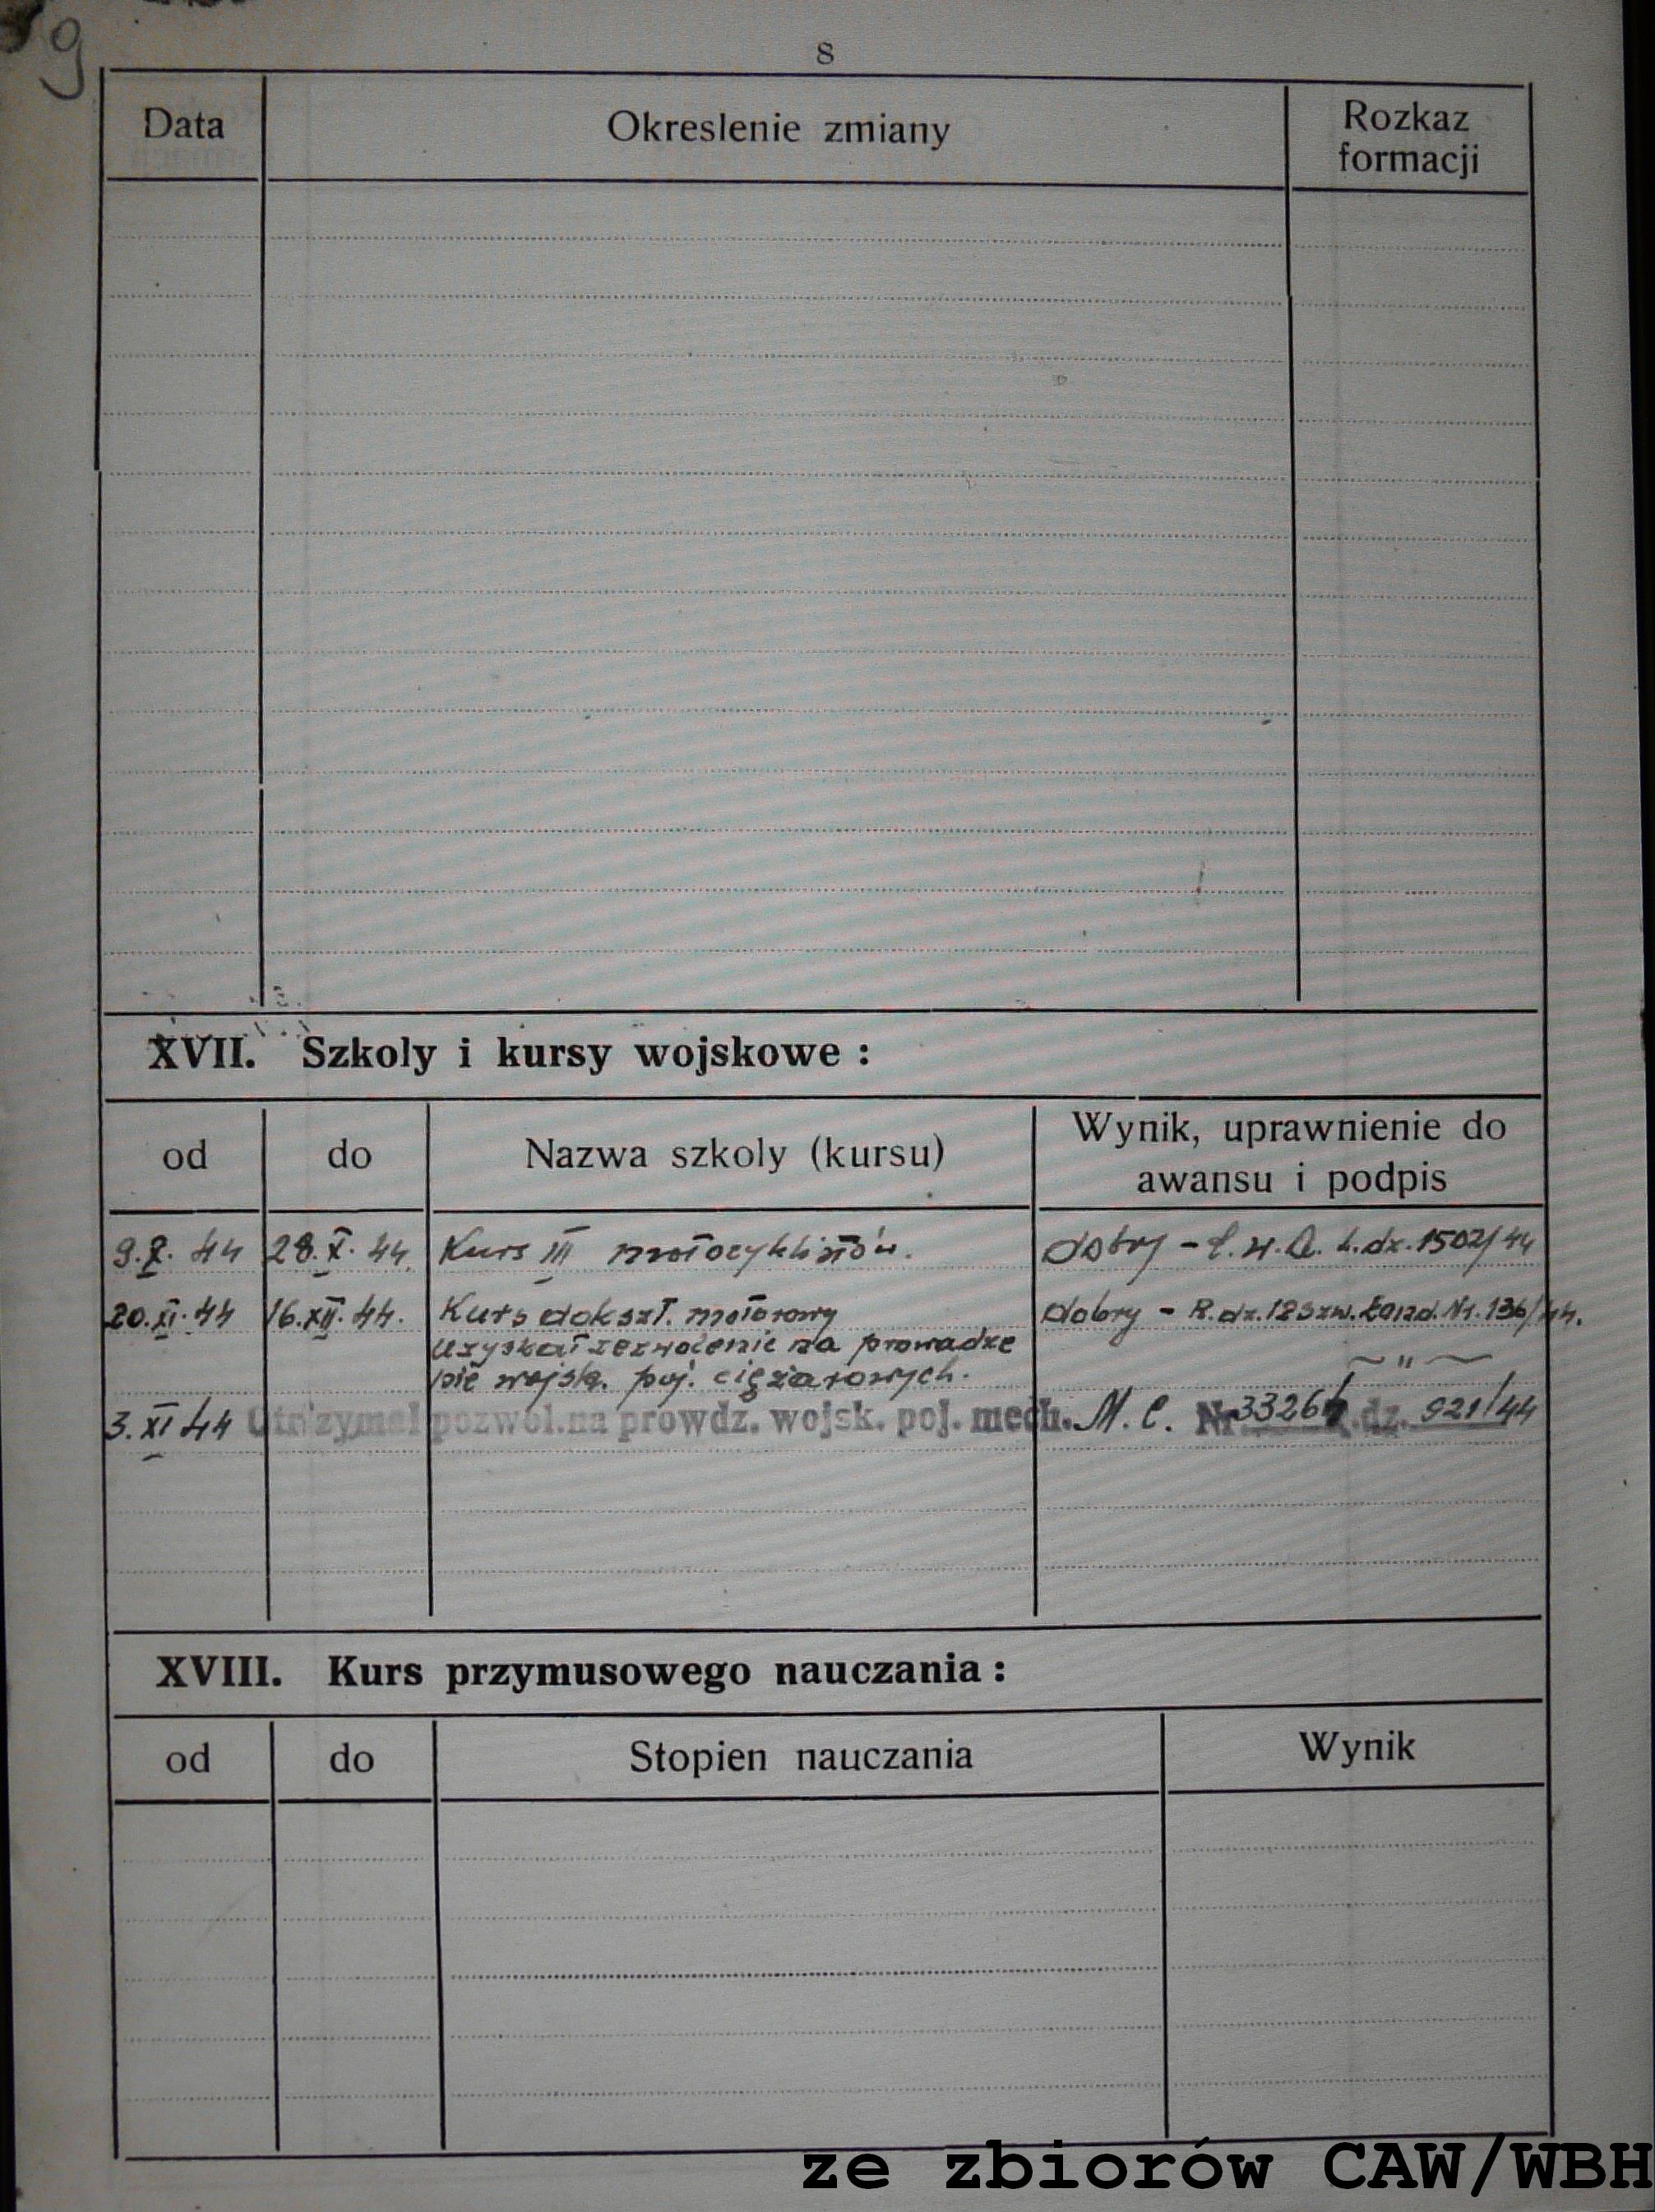 9
8
Data
Okreslenie zmiany
Rozkaz
formacji
XVII. Szkoly i kursy wojskowe :
od
do
Nazwa szkoly (kursu)
Wynik, uprawnienie do
awansu i podpis
9.X.44 28.X.44. Kurs III motocyklistów. dobry - L.dz.1502/44
20.XI.44 16.XII.44. Kurs dokszt. motorowy dobry - R.dz.12 Szw. Łączn. Nr.136/44.
uzyskał zezwolenie na prowadze
nie wojsk. poj. ciężarowych. — " —
3.XI 44 Otrzymal pozwol.na prowdz. wojsk. poj. mech. M.C. Nr 33264 L.dz. 921/44
XVIII. Kurs przymusowego nauczania :
od
do
Stopien nauczania
Wynik
ze zbiorów CAW/WBH